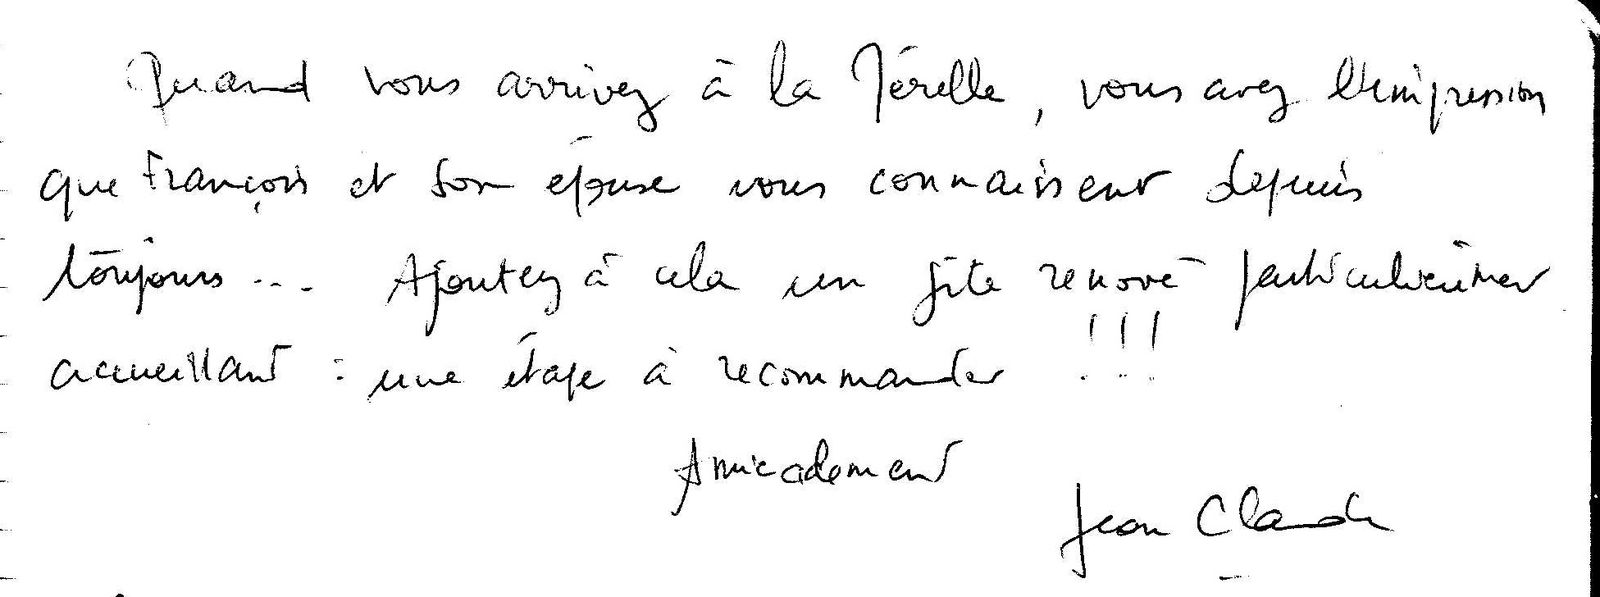 Quand vous arrivez à la Pérelle, vous avez l'impression
que François et son épouse vous connaissent depuis
toujours... Ajoutez à cela un gîte rénové particulièrement
accueillant : une étape à recommander !!!
Amicalement
Jean Claude